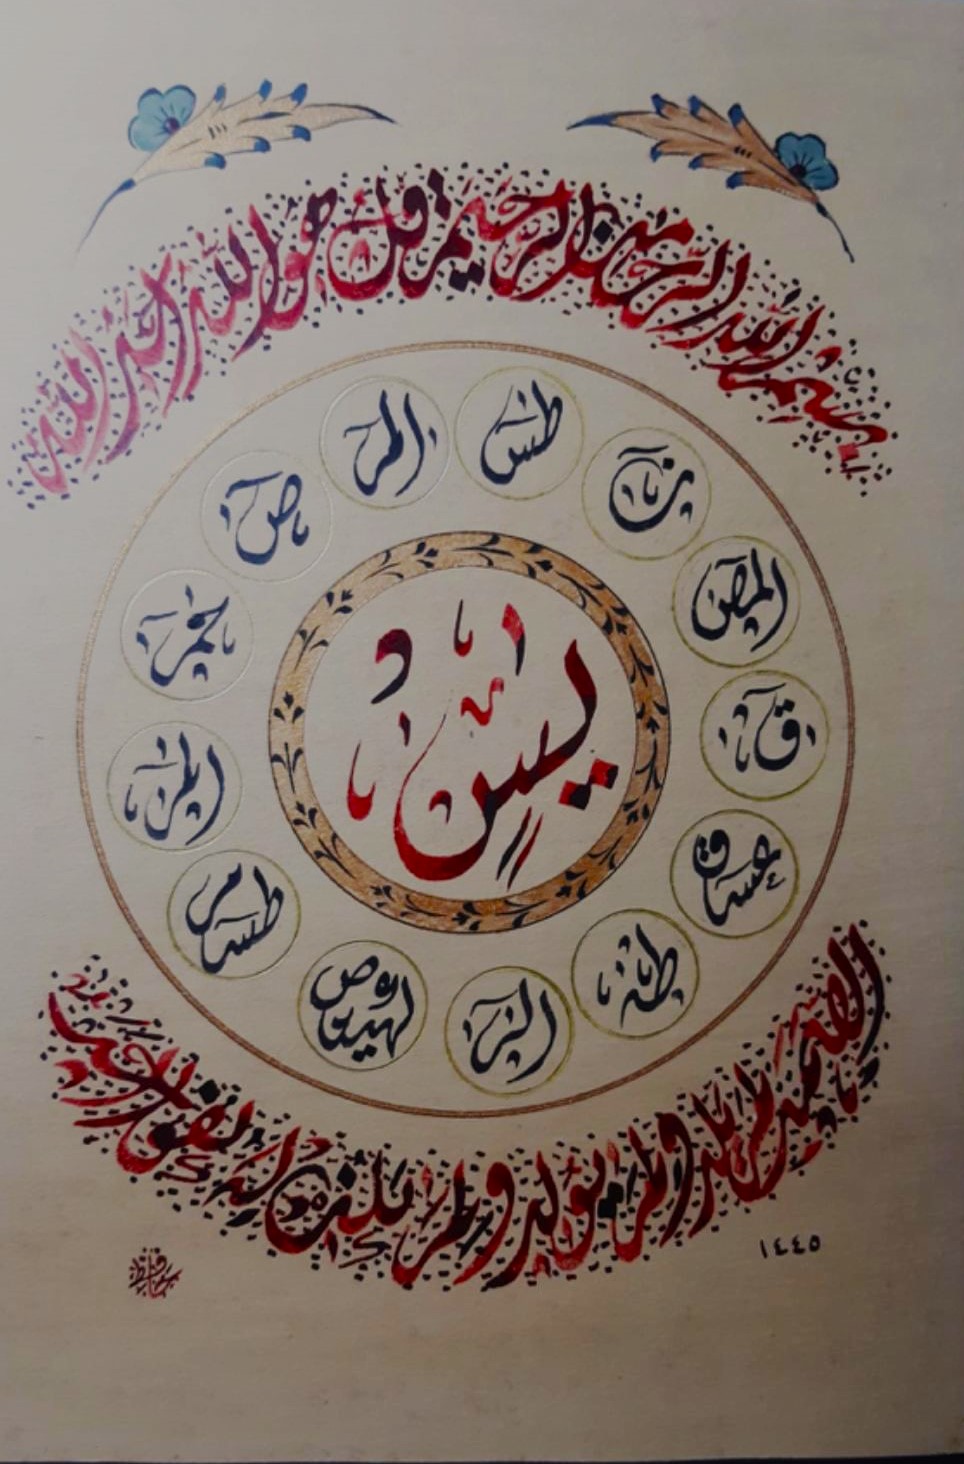 بسم الله الرحمن الرحيم قل هو الله احد الله
طس
ن
المص
ق
عسق
طه
الر
كهيعص
طسم
الم
حم
ص
المر
يس
الصمد لم يلد ولم يولد ولم يكن له كفوا احد
١٤٤٥